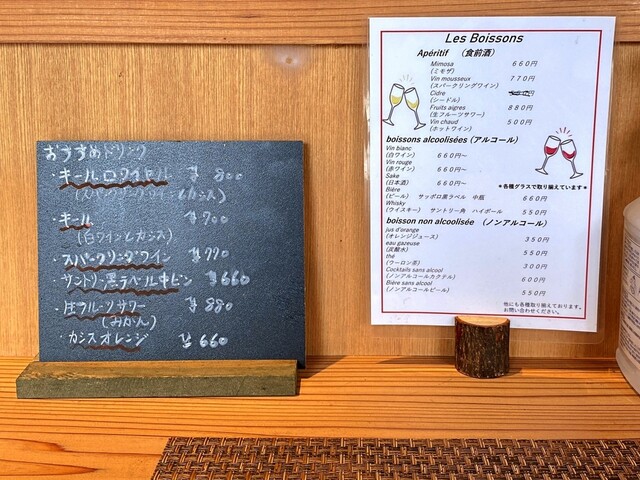 おすすめドリンク
・キールロワイヤル ¥800
(スパークリングワイン+カシス)
・キール ¥700
(白ワイン+カシス)
スパークリングワイン ¥770
・サントリー黒ラベル中ビン ¥660
・生フルーツサワー ¥880
(みかん)
・カシスオレンジ ¥660
Les Boissons
Apéritif （食前酒）
Mimosa 660円
(ミモザ)
Vin mousseux 770円
(スパークリングワイン)
Cidre 円
(シードル)
Fruits aigres 880円
(生フルーツサワー)
Vin chaud 500円
(ホットワイン)
boissons alcoolisées (アルコール)
Vin blanc
(白ワイン) 660円～
Vin rouge
(赤ワイン) 660円～
Sake
(日本酒) 660円～
＊各種グラスで取り揃えています＊
Bière
(ビール) サッポロ黒ラベル 中瓶 660円
Whisky
(ウイスキー) サントリー角 ハイボール 550円
boisson non alcoolisée （ノンアルコール）
jus d'orange 350円
(オレンジジュース)
eau gazeuse 550円
(炭酸水)
thé 300円
(ウーロン茶)
Cocktails sans alcool 600円
(ノンアルコールカクテル)
Bière sans alcool 550円
(ノンアルコールビール)
他にも各種取り揃えております。
お問い合わせください。